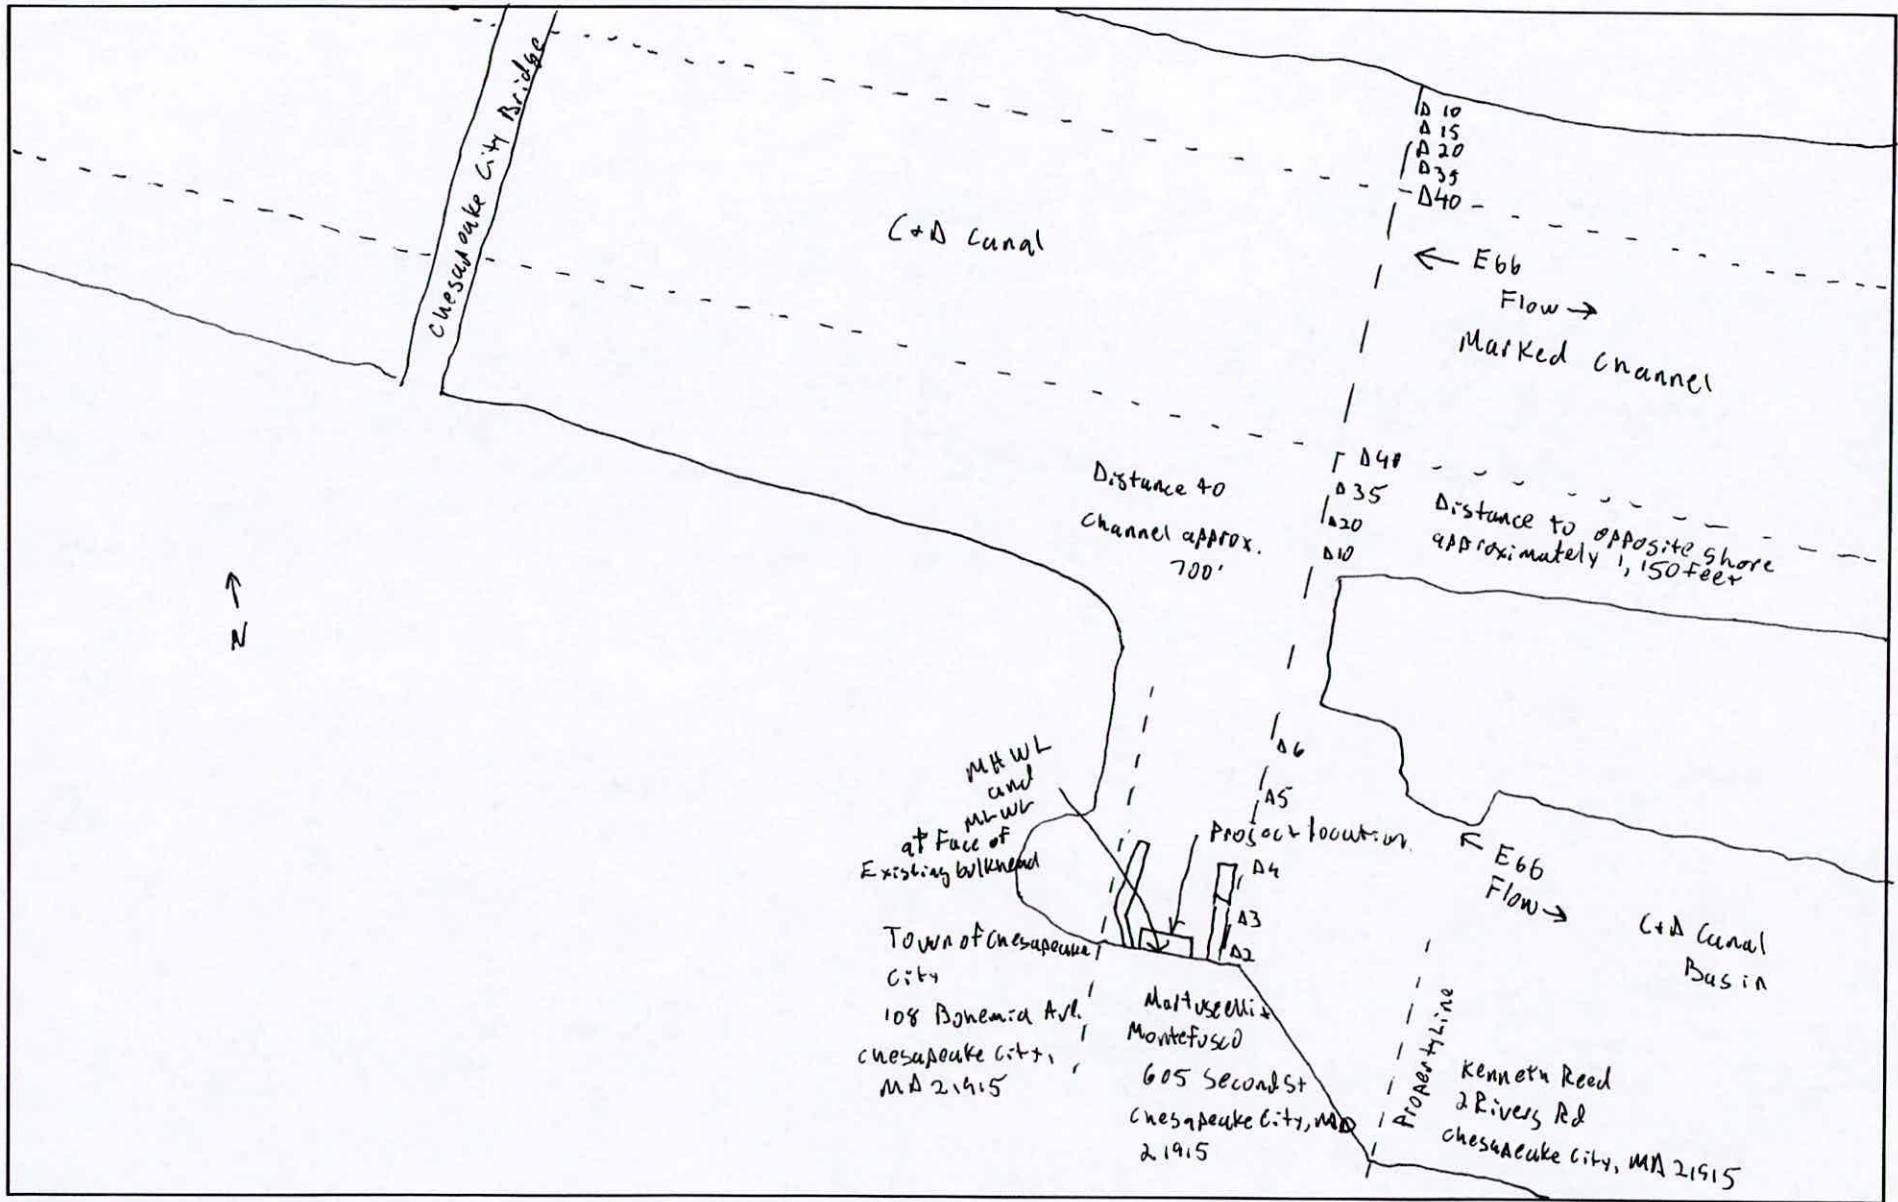 Chesapeake City Bridge
C+D Canal
D 10
D 15
D 20
D 35
D40
← Ebb
Flow →
Marked Channel
Distance to
Channel approx.
700'
D40
D 35
D20
D10
Distance to opposite shore
approximately 1,150 feet
N
D6
D5
D4
D3
D2
MHWL
and
MLWL
at Face of
Existing bulkhead
Project location
← Ebb
Flow →
C+D Canal
Basin
Town of Chesapeake
City
108 Bohemia Ave.
Chesapeake City,
MD 21915
Martuscelli +
Montefusco
605 Second St
Chesapeake City, MD
21915
Property Line
Kenneth Reed
2 Rivers Rd
Chesapeake City, MD 21915